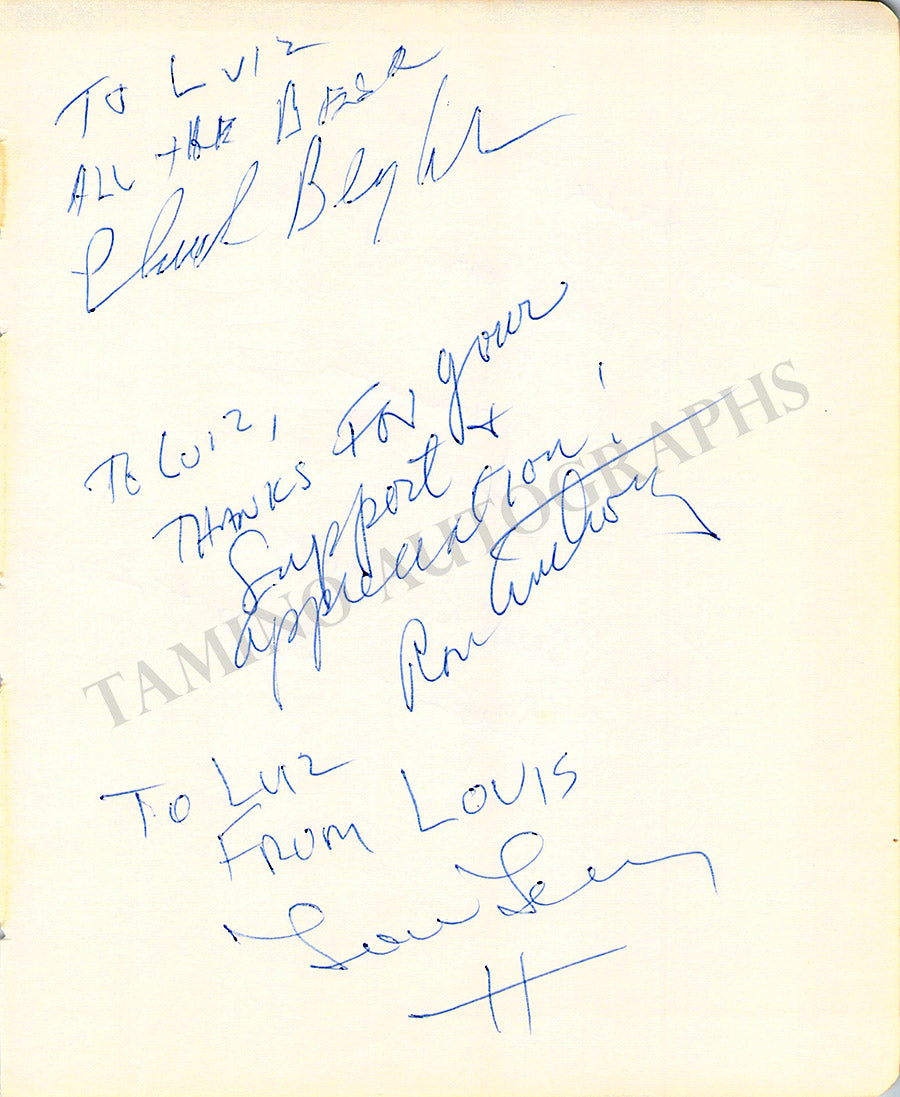 To Luiz
ALL tHE BEST
Chuck
To Luiz,
THANKS FOR your
Support +
appreciation!
Ron Anthony
To Luiz
FROM LOUIS
TAMINO AUTOGRAPHS